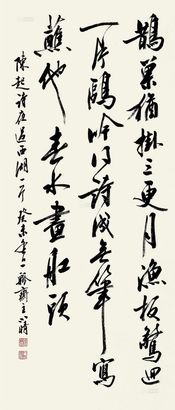 鵲巢猶掛三更月漁板驚迴
一片鷗吟得詩成無筆寫
蘸他春水畫船頭
陳起詩夜過西湖一首 癸未